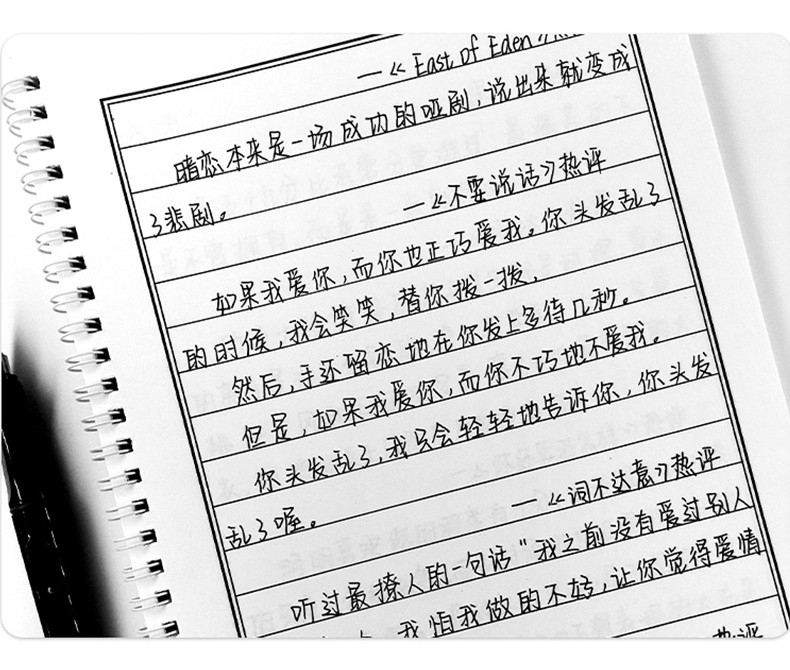 —《East of Eden》热
暗恋本来是一场成功的哑剧，说出来就变成
了悲剧。 —《不要说话》热评
如果我爱你，而你也正巧爱我。你头发乱了
的时候，我会笑笑，替你拨一拨，
然后，手还留恋地在你发上多待几秒。
但是，如果我爱你，而你不巧地不爱我。
你头发乱了，我只会轻轻地告诉你，你头发
乱了喔。 —《词不达意》热评
听过最撩人的一句话"我之前没有爱过别人
我怕我做的不好，让你觉得爱情
热评